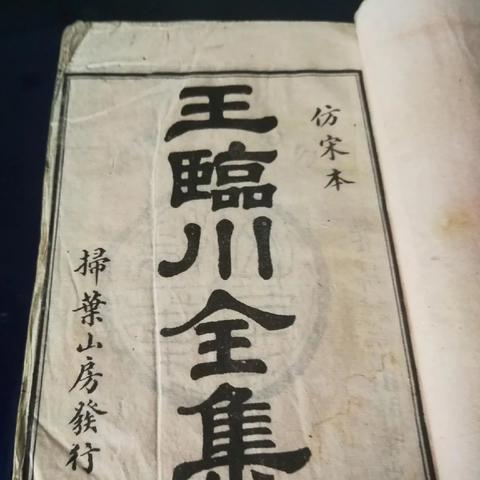 仿宋本
王臨川全集
掃葉山房發行